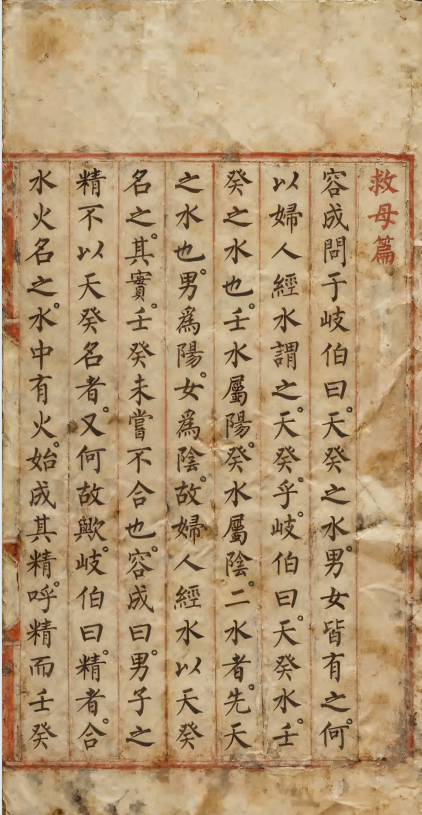 救母篇
容成問于岐伯曰。天癸之水。男女皆有之。何
以婦人經水謂之天癸乎。岐伯曰。天癸水。壬
癸之水也。壬水屬陽。癸水屬陰。二水者。先天
之水也。男爲陽。女爲陰。故婦人經水以天癸
名之。其實。壬癸未嘗不合也。容成曰。男子之
精不以天癸名者。又何故歟。岐伯曰。精者。合
水火名之。水中有火。始成其精。呼精而壬癸